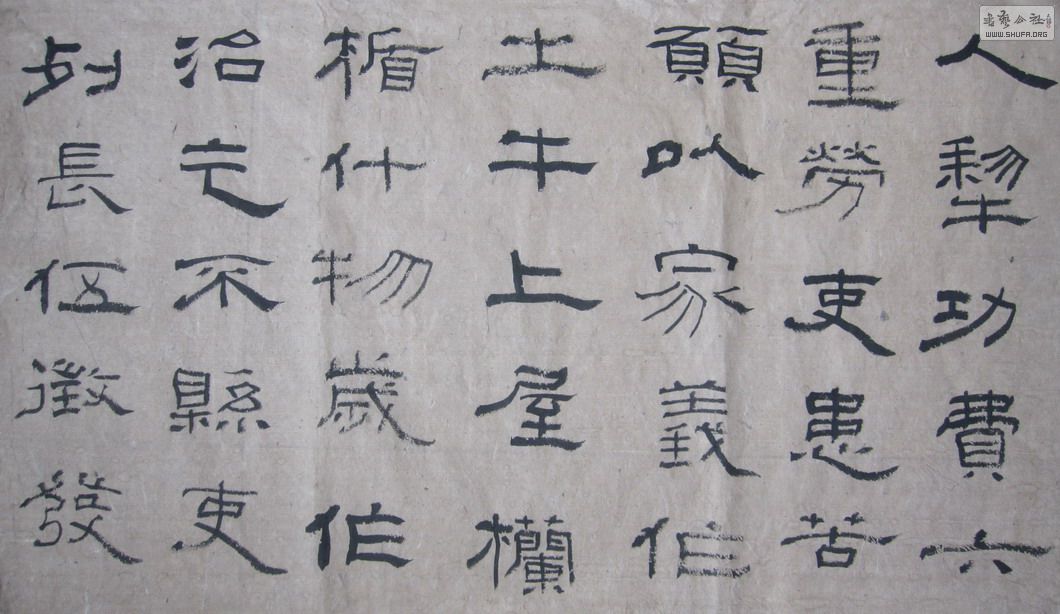 人犂功費六
重勞吏患苦
願以家義作
土牛上屋欄
楯什物歲作
治乞不縣吏
列長伍徵發
書藝公社
WWW.SHUFA.ORG